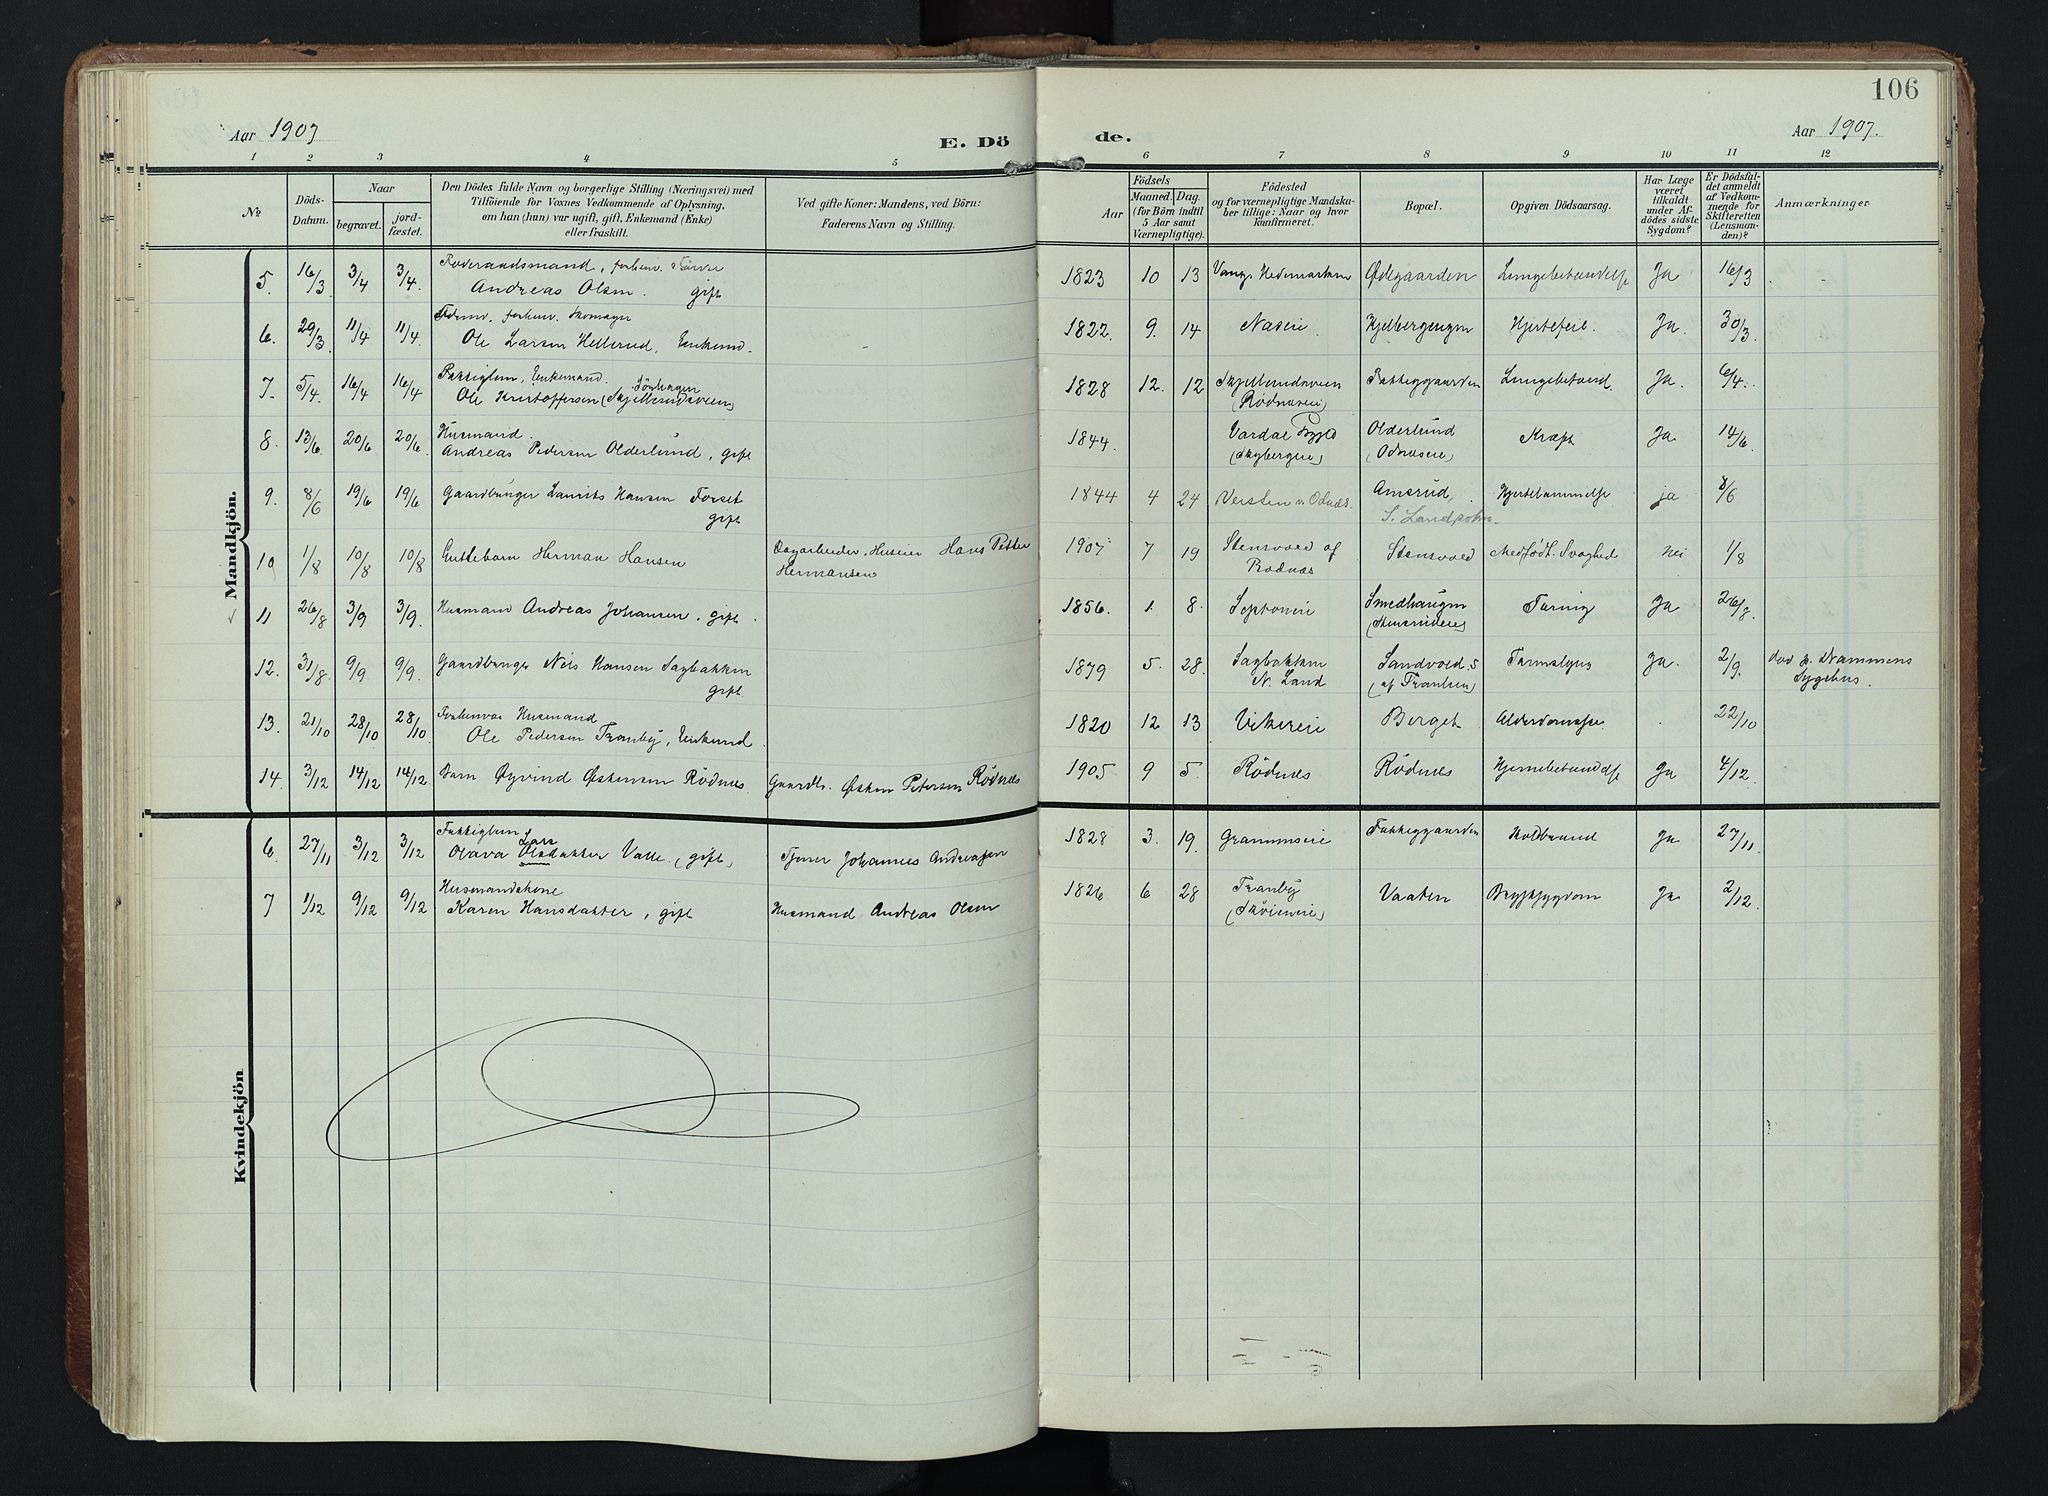 106
Aar 1907
E. Dö
de.
Aar 1907.
1 2 3 4 5 6 7 8 9 10 11 12
No.
Döds-Datum.
Naar
begravet.
jord-fæstet.
Den Dödes fulde Navn og borgerlige Stilling (Næringsvei) med
Tilföiende for Voxnes Vedkommende af Oplysning,
om han (hun) var ugift, gift, Enkemand (Enke)
eller fraskilt.
Ved gifte Koner: Mandens, ved Börn:
Faderens Navn og Stilling.
Födsels
Aar
Maaned.
Dag.
(for Börn indtil
5 Aar samt
Værnepligtige).
Födested
og for værnepligtige Mandska-
ber tillige: Naar og hvor
konfirmeret.
Bopæl.
Opgiven Dödsaarsag.
Har Læge
været
tilkaldt
under Af-
dödes sidste
Sygdom?
Er Dödsfal-
det anmeldt
af Vedkom-
mende for
Skifteretten
(Lensman-
den)?
Anmærkninger
Mandkjön.
5. 16/3 3/4 3/4. Föderaadsmand, forhenv.
Andreas Olsen. gift 1823 10 13 Vang, Hedemarken Ødegaarden Lungebetændelse Ja 16/3
6. 29/3 11/4 11/4. forhenv. Skomager
Ole Larsen Hellerud, Enkemd. 1822. 9. 14 Næseie. Hjertefeil. Ja. 30/3
7. 5/4. 16/4 16/4 Fattiglem, Enkemand.
Ole Kristoffersen (Skjellerudsveen) 1828 12. 12 Skjellerudsveen
(Rödnæseie) Fattiggaarden Lungebetænd. Ja. 6/4.
8. 13/6. 20/6 20/6. Husmand.
Andreas Pedersen Olderlund, gift 1844. Vardal
Olderlund
(Odnæseie) Kræft Ja 14/6
9. 8/6 19/6 19/6 Gaardbruger Laurits Hansen Forset
gift 1844 4 24 Versten v. Odnæs. Amsrud,
S. Land ja 8/6
10 1/8 10/8 10/8 Guttebarn Herman Hansen Dagarbeider, Huseier Hans Petter
Hermansen 1907 7 19 Stensvold af
Rodnæs Stensvold Medfödt Svaghed nei 1/8
11 26/8 3/9 3/9. Husmand Andreas Johansen, gift. 1856. 1. 8. Smedhaugen
Tæring Ja 26/8
12. 31/8. 9/9 9/9. Gaardbruger Nils Hansen Sagbakken
gift. 1879 5. 28. Sagbakken
N. Land Sandvold, S
Ja. 2/9. död p. Drammens
Sygehus.
13. 21/10 28/10 28/10. Forhenvær. Husmand
Ole Pedersen Tranby, Enkemd. 1820 12 13 Vikereie Berget Alderdomssv. 22/10
14. 3/12 14/12 14/12 Barn Øyvind Østensen Rödnes. Gaardbr. Østen Petersen Rödnes 1905 9 5. Rödnes Rödnes Hjernebetændelse Ja 4/12.
Kvindekjön
6. 27/11 3/12 3/12 Fattiglem
Olava Larsdatter Valle. (gift) Tjener Johannes Andreassen 1828 3. 19. Grammseie Fattiggaarden Koldbrand Ja 27/11.
7 1/12 9/12 9/12 Husmandskone
Karen Hansdatter, gift Husmand Andreas Olsen 1826 6 28 Tranby
Vaaten Brystsygdom Ja 2/12.